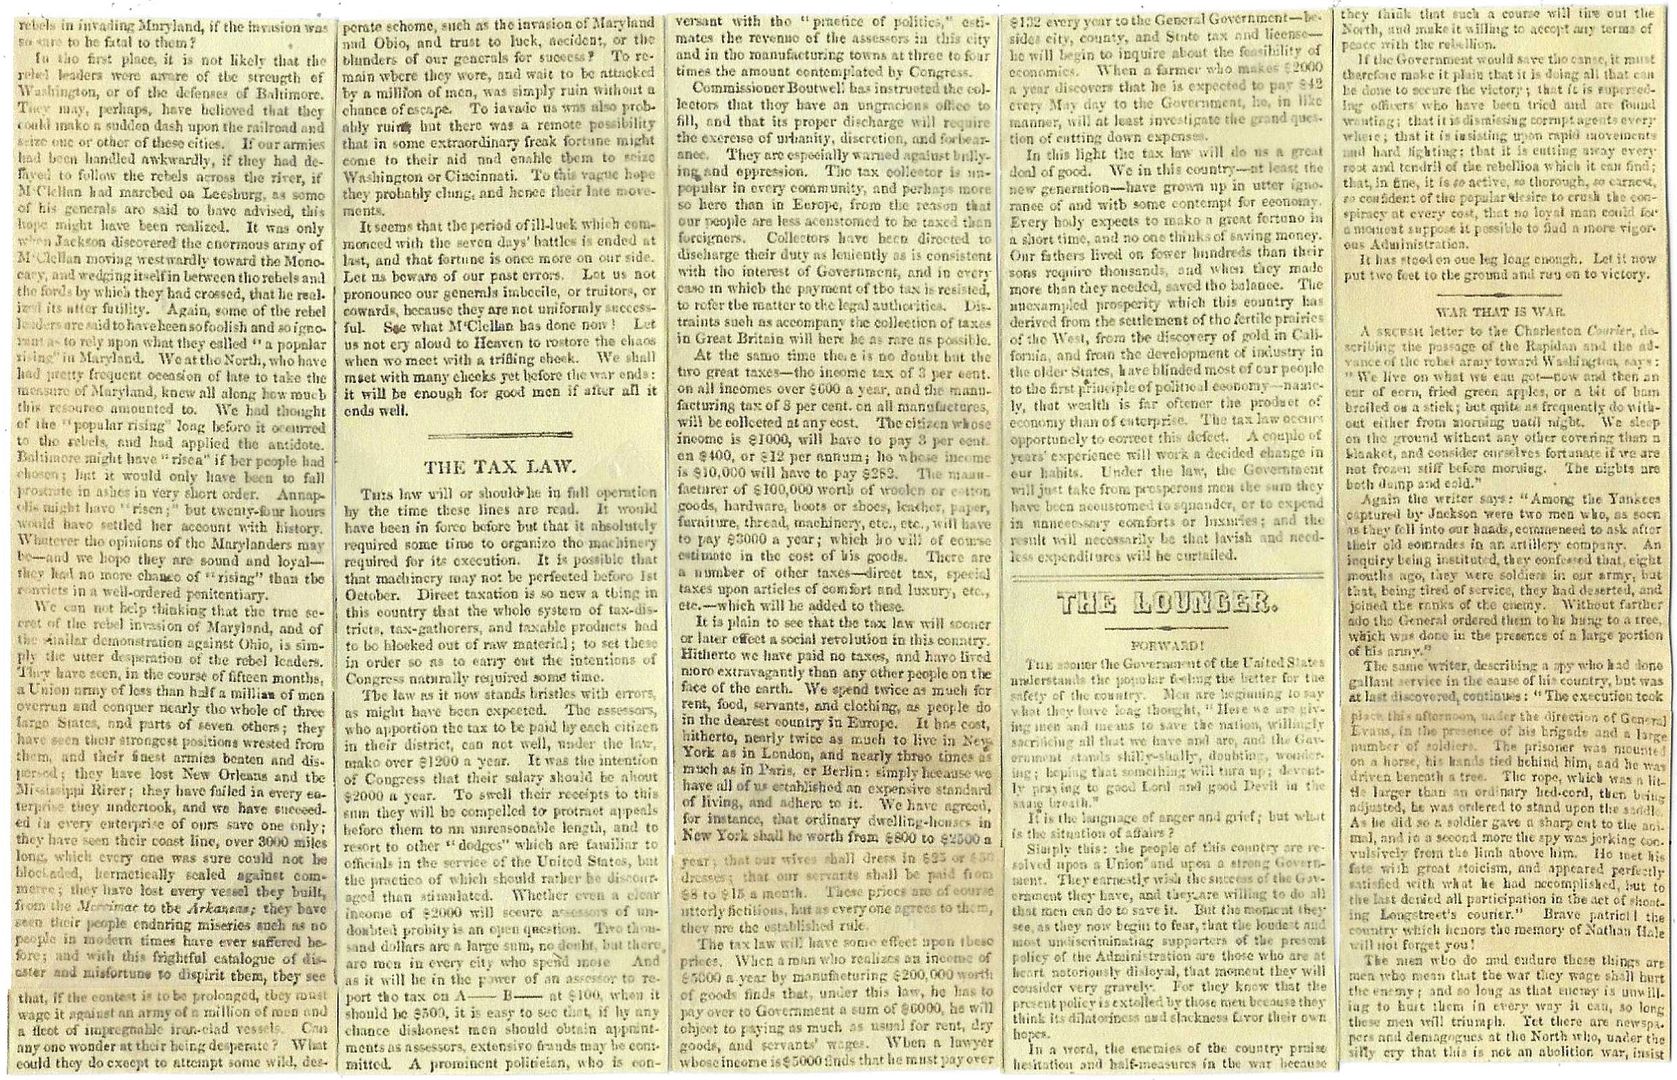 rebels in invading Maryland, if the invasion was
so sure to be fatal to them?
In the first place, it is not likely that the
rebel leaders were aware of the strength of
Washington, or of the defenses of Baltimore.
They may, perhaps, have believed that they
could make a sudden dash upon the railroad and
seize one or other of these cities. If our armies
had been handled awkwardly, if they had de-
layed to follow the rebels across the river, if
M'Clellan had marched on Leesburg, as some
of his generals are said to have advised, this
hope might have been realized. It was only
when Jackson discovered the enormous army of
M'Clellan moving westwardly toward the Mono-
cacy, and wedging itself in between the rebels and
the fords by which they had crossed, that he real-
ized its utter futility. Again, some of the rebel
leaders are said to have been so foolish and so igno-
rant as to rely upon what they called "a popular
rising" in Maryland. We at the North, who have
had pretty frequent occasion of late to take the
measure of Maryland, knew all along how much
this resource amounted to. We had thought
of the "popular rising" long before it occurred
to the rebels, and had applied the antidote.
Baltimore might have "risen" if her people had
chosen; but it would only have been to fall
prostrate in ashes in very short order. Annap-
olis might have "risen;" but twenty-four hours
would have settled her account with history.
Whatever the opinions of the Marylanders may
be—and we hope they are sound and loyal—
they had no more chance of "rising" than the
convicts in a well-ordered penitentiary.
We can not help thinking that the true se-
cret of the rebel invasion of Maryland, and of
the similar demonstration against Ohio, is sim-
ply the utter desperation of the rebel leaders.
They have seen, in the course of fifteen months,
a Union army of less than half a million of men
overrun and conquer nearly the whole of three
large States, and parts of seven others; they
have seen their strongest positions wrested from
them, and their finest armies beaten and dis-
persed; they have lost New Orleans and the
Mississippi River; they have failed in every en-
terprise they undertook, and we have succeed-
ed in every enterprise of ours save one only;
they have seen their coast line, over 3000 miles
long, which every one was sure could not be
blockaded, hermetically sealed against com-
merce; they have lost every vessel they built,
from the Merrimac to the Arkansas; they have
seen their people enduring miseries such as no
people in modern times have ever suffered be-
fore; and with this frightful catalogue of dis-
aster and misfortune to dispirit them, they see
that, if the contest is to be prolonged, they must
wage it against an army of a million of men and
a fleet of impregnable iron-clad vessels. Can
any one wonder at their being desperate? What
could they do except to attempt some wild, des-
perate scheme, such as the invasion of Maryland
and Ohio, and trust to luck, accident, or the
blunders of our generals for success? To re-
main where they were, and wait to be attacked
by a million of men, was simply ruin without a
chance of escape. To invade us was also prob-
ably ruin, but there was a remote possibility
that in some extraordinary freak fortune might
come to their aid and enable them to seize
Washington or Cincinnati. To this vague hope
they probably clung, and hence their late move-
ments.
It seems that the period of ill-luck which com-
menced with the seven days' battles is ended at
last, and that fortune is once more on our side.
Let us beware of our past errors. Let us not
pronounce our generals imbecile, or traitors, or
cowards, because they are not uniformly success-
ful. See what M'Clellan has done now! Let
us not cry aloud to Heaven to restore the chaos
when we meet with a trifling check. We shall
meet with many checks yet before the war ends:
it will be enough for good men if after all it
ends well.
THE TAX LAW.
This law will or should be in full operation
by the time these lines are read. It would
have been in force before but that it absolutely
required some time to organize the machinery
required for its execution. It is possible that
that machinery may not be perfected before 1st
October. Direct taxation is so new a thing in
this country that the whole system of tax-dis-
tricts, tax-gatherers, and taxable products had
to be blocked out of raw material; to set these
in order so as to carry out the intentions of
Congress naturally required some time.
The law as it now stands bristles with errors,
as might have been expected. The assessors,
who apportion the tax to be paid by each citizen
in their district, can not well, under the law,
make over $1200 a year. It was the intention
of Congress that their salary should be about
$2000 a year. To swell their receipts to this
sum they will be compelled to protract appeals
before them to an unreasonable length, and to
resort to other "dodges" which are familiar to
officials in the service of the United States, but
the practice of which should rather be discour-
aged than stimulated. Whether even a clear
income of $2000 will secure assessors of un-
doubted probity is an open question. Two thou-
sand dollars are a large sum, no doubt, but there
are men in every city who spend more And
as it will be in the power of an assessor to re-
port the tax on A—— B—— at $100, when it
should be $500, it is easy to see that, if by any
chance dishonest men should obtain appoint-
ments as assessors, extensive frauds may be com-
mitted. A prominent politician, who is con-
versant with the "practice of politics," esti-
mates the revenue of the assessors in this city
and in the manufacturing towns at three to four
times the amount contemplated by Congress.
Commissioner Boutwell has instructed the col-
lectors that they have an ungracious office to
fill, and that its proper discharge will require
the exercise of urbanity, discretion, and forbear-
ance. They are especially warned against bully-
ing and oppression. The tax collector is un-
popular in every community, and perhaps more
so here than in Europe, from the reason that
our people are less accustomed to be taxed than
foreigners. Collectors have been directed to
discharge their duty as leniently as is consistent
with the interest of Government, and in every
case in which the payment of the tax is resisted,
to refer the matter to the legal authorities. Dis-
traints such as accompany the collection of taxes
in Great Britain will here be as rare as possible.
At the same time there is no doubt but the
two great taxes—the income tax of 3 per cent.
on all incomes over $600 a year, and the manu-
facturing tax of 3 per cent. on all manufactures,
will be collected at any cost. The citizen whose
income is $1000, will have to pay 3 per cent.
on $400, or $12 per annum; he whose income
is $10,000 will have to pay $282. The manu-
facturer of $100,000 worth of woolen or cotton
goods, hardware, boots or shoes, leather, paper,
furniture, thread, machinery, etc., etc., will have
to pay $3000 a year; which he will of course
estimate in the cost of his goods. There are
a number of other taxes—direct tax, special
taxes upon articles of comfort and luxury, etc.,
etc.—which will be added to these.
It is plain to see that the tax law will sooner
or later effect a social revolution in this country.
Hitherto we have paid no taxes, and have lived
more extravagantly than any other people on the
face of the earth. We spend twice as much for
rent, food, servants, and clothing, as people do
in the dearest country in Europe. It has cost,
hitherto, nearly twice as much to live in New
York as in London, and nearly three times as
much as in Paris, or Berlin: simply because we
have all of us established an expensive standard
of living, and adhere to it. We have agreed,
for instance, that ordinary dwelling-houses in
New York shall be worth from $800 to $2500 a
year; that our wives shall dress in $25 or $50
dresses; that our servants shall be paid from
$8 to $15 a month. These prices are of course
utterly fictitious, but as every one agrees to them,
they are the established rule.
The tax law will have some effect upon these
prices. When a man who realizes an income of
$5000 a year by manufacturing $200,000 worth
of goods finds that, under this law, he has to
pay over to Government a sum of $6000, he will
object to paying as much as usual for rent, dry
goods, and servants' wages. When a lawyer
whose income is $5000 finds that he must pay over
$132 every year to the General Government—be-
sides city, county, and State tax and license—
he will begin to inquire about the feasibility of
economics. When a farmer who makes $2000
a year discovers that he is expected to pay $42
every May day to the Government, he, in like
manner, will at least investigate the grand ques-
tion of cutting down expenses.
In this light the tax law will do us a great
deal of good. We in this country—at least the
new generation—have grown up in utter igno-
rance of and with some contempt for economy.
Every body expects to make a great fortune in
a short time, and no one thinks of saving money.
Our fathers lived on fewer hundreds than their
sons require thousands, and when they made
more than they needed, saved the balance. The
unexampled prosperity which this country has
derived from the settlement of the fertile prairies
of the West, from the discovery of gold in Cali-
fornia, and from the development of industry in
the older States, have blinded most of our people
to the first principle of political economy—name-
ly, that wealth is far oftener the product of
economy than of enterprise. The tax law occurs
opportunely to correct this defect. A couple of
years' experience will work a decided change in
our habits. Under the law, the Government
will just take from prosperous men the sum they
have been accustomed to squander, or to expend
in unnecessary comforts or luxuries; and the
result will necessarily be that lavish and need-
less expenditures will be curtailed.
THE LOUNGER.
FORWARD!
The sooner the Government of the United States
understands the popular feeling the better for the
safety of the country. Men are beginning to say
what they have long thought, "Here we are giv-
ing men and means to save the nation, willingly
sacrificing all that we have and are, and the Gov-
ernment stands shilly-shally, doubting, wonder-
ing; hoping that something will turn up; devout-
ly praying to good Lord and good Devil in the
same breath."
It is the language of anger and grief; but what
is the situation of affairs?
Simply this: the people of this country are re-
solved upon a Union and upon a strong Govern-
ment. They earnestly wish the success of the Gov-
ernment they have, and they are willing to do all
that men can do to save it. But the moment they
see, as they now begin to fear, that the loudest and
most undiscriminating supporters of the present
policy of the Administration are those who are at
heart notoriously disloyal, that moment they will
consider very gravely. For they know that the
present policy is extolled by those men because they
think its dilatoriness and slackness favor their own
hopes.
In a word, the enemies of the country praise
hesitation and half-measures in the war because
they think that such a course will tire out the
North, and make it willing to accept any terms of
peace with the rebellion.
If the Government would save the cause, it must
therefore make it plain that it is doing all that can
be done to secure the victory; that it is supersed-
ing officers who have been tried and are found
wanting; that it is dismissing corrupt agents every
where; that it is insisting upon rapid movements
and hard fighting; that it is cutting away every
root and tendril of the rebellion which it can find;
that, in fine, it is so active, so thorough, so earnest,
so confident of the popular desire to crush the con-
spiracy at every cost, that no loyal man could for
a moment suppose it possible to find a more vigor-
ous Administration.
It has stood on one leg long enough. Let it now
put two feet to the ground and run on to victory.
WAR THAT IS WAR.
A secesh letter to the Charleston Courier, de-
scribing the passage of the Rapidan and the ad-
vance of the rebel army toward Washington, says:
"We live on what we can get—now and then an
ear of corn, fried green apples, or a bit of ham
broiled on a stick; but quite as frequently do with-
out either from morning until night. We sleep
on the ground without any other covering than a
blanket, and consider ourselves fortunate if we are
not frozen stiff before morning. The nights are
both damp and cold."
Again the writer says: "Among the Yankees
captured by Jackson were two men who, as soon
as they fell into our hands, commenced to ask after
their old comrades in an artillery company. An
inquiry being instituted, they confessed that, eight
months ago, they were soldiers in our army, but
that, being tired of service, they had deserted, and
joined the ranks of the enemy. Without farther
ado the General ordered them to be hung to a tree,
which was done in the presence of a large portion
of his army."
The same writer, describing a spy who had done
gallant service in the cause of his country, but was
at last discovered, continues: "The execution took
place this afternoon, under the direction of General
Evans, in the presence of his brigade and a large
number of soldiers. The prisoner was mounted
on a horse, his hands tied behind him, and he was
driven beneath a tree. The rope, which was a lit-
tle larger than an ordinary bed-cord, then being
adjusted, he was ordered to stand upon the saddle.
As he did so a soldier gave a sharp cut to the ani-
mal, and in a second more the spy was jerking con-
vulsively from the limb above him. He met his
fate with great stoicism, and appeared perfectly
satisfied with what he had accomplished, but to
the last denied all participation in the act of shoot-
ing Longstreet's courier." Brave patriot! the
country which honors the memory of Nathan Hale
will not forget you!
The men who do and endure these things are
men who mean that the war they wage shall hurt
the enemy; and so long as that enemy is unwill-
ing to hurt them in every way it can, so long
these men will triumph. Yet there are newspa-
pers and demagogues at the North who, under the
silly cry that this is not an abolition war, insist